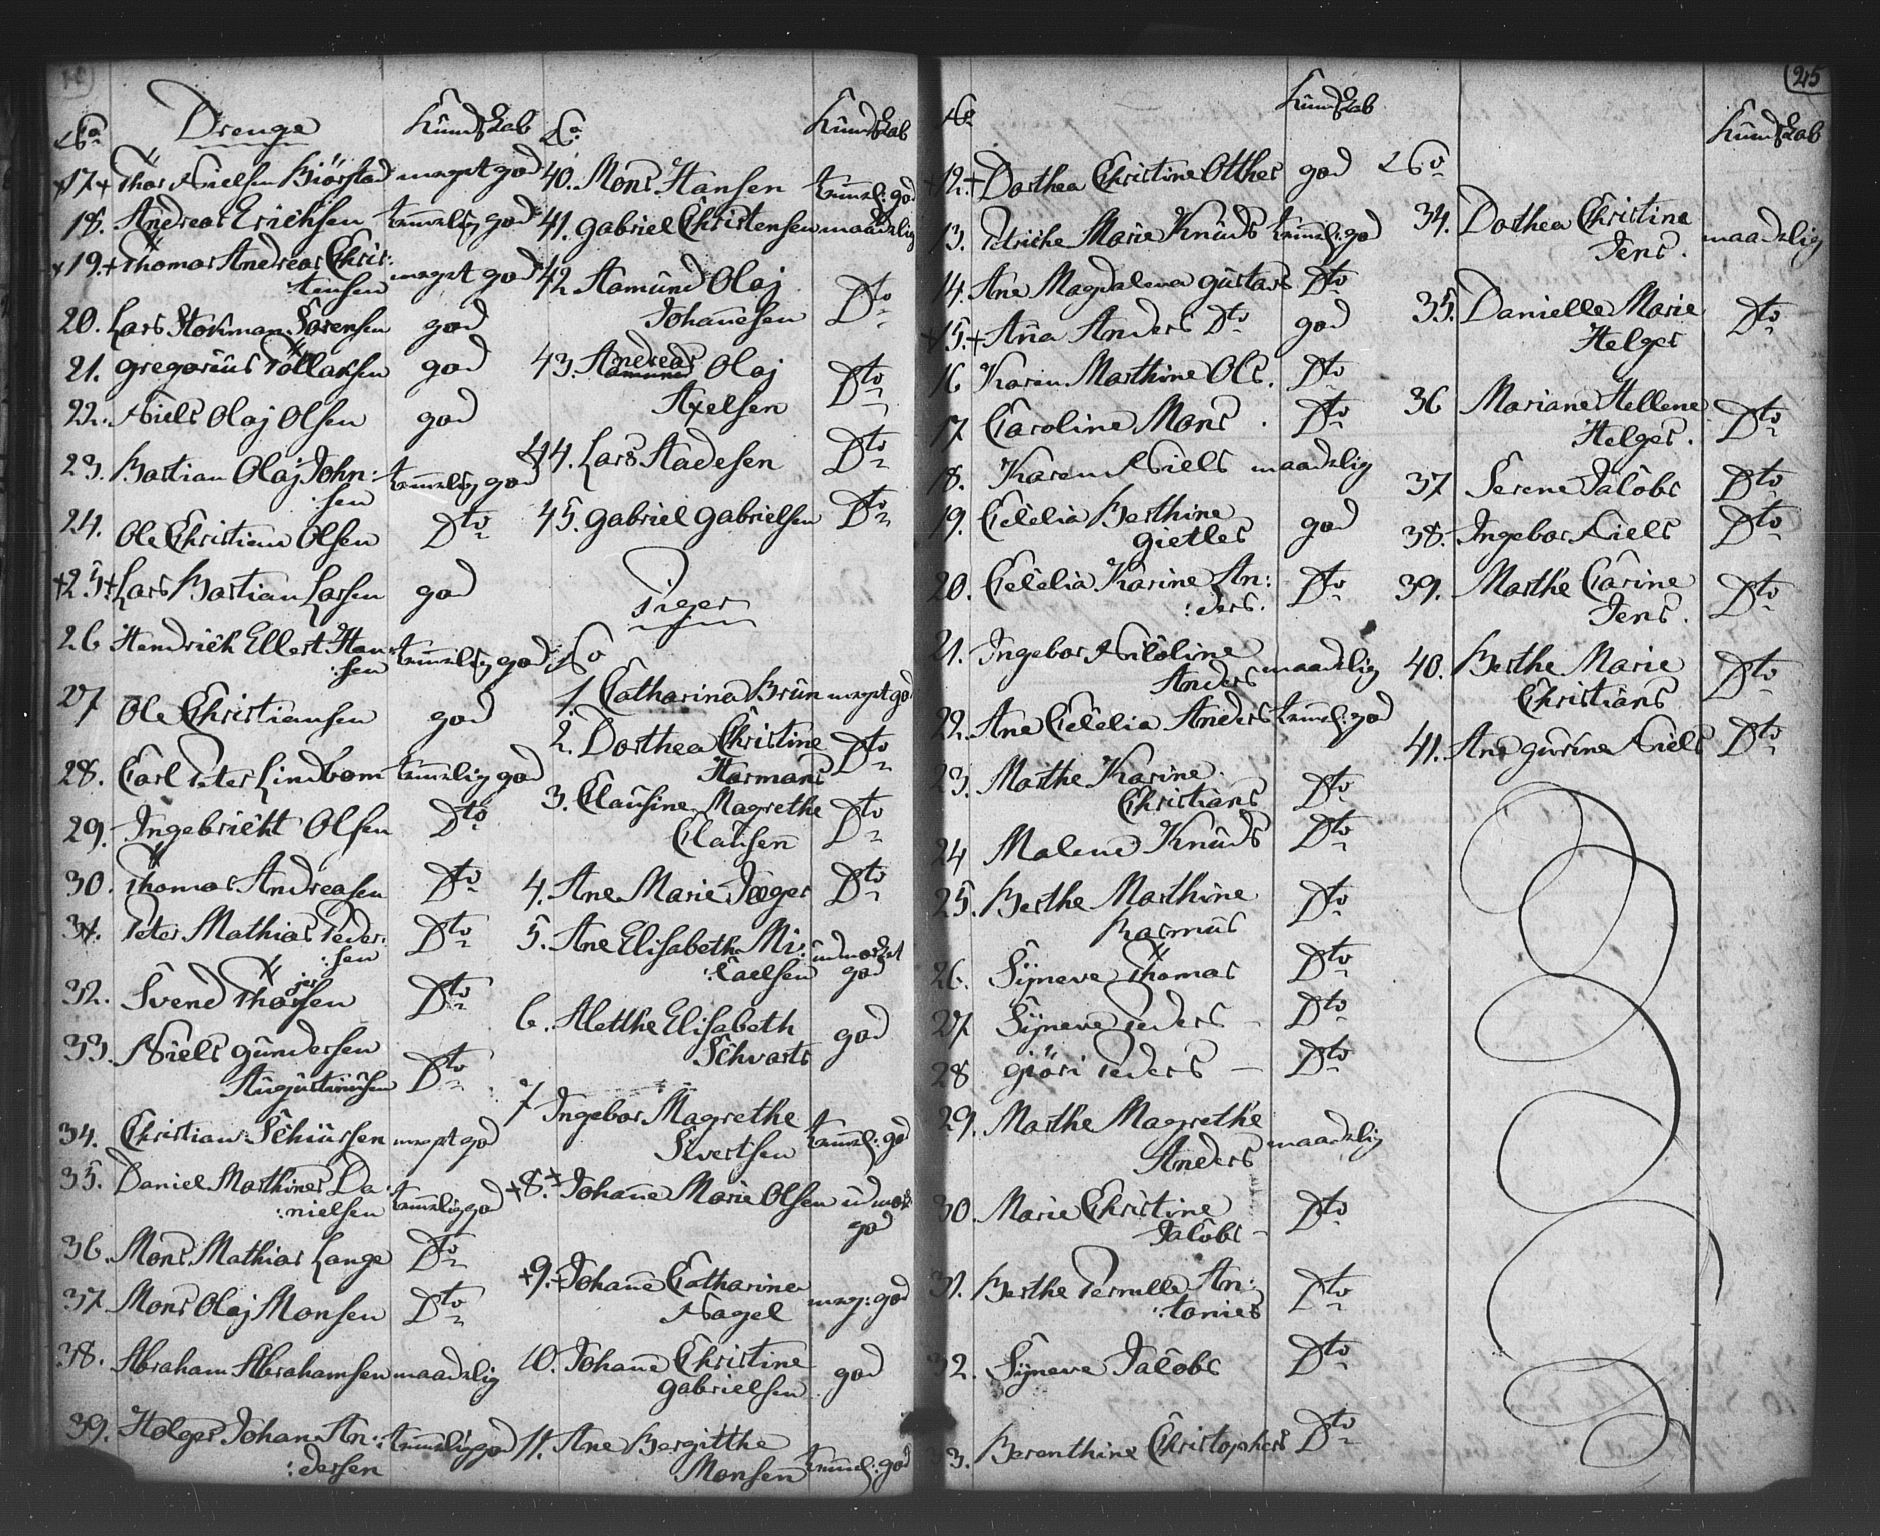 No Drenge Kundskab
17. Thor Nielsen Biörstad meget god
18. Andreas Erichsen temmelig god
19. Thomas Andreas Chris:
:tensen meget god
20. Lars Stohman Sörensen god
21. Gregorius Tollaksen god
22. Niels Olaj Olsen god
23. Bastian Olaj John:
:sen temmelig god
24. Ole Christian Olsen Dto
25. Lars Bastian Larsen god
26 Hendrich Ellert Han:
:sen temmelig god
27 Ole Christiansen god
28. Carl Peter Lindbom temmelig god
29. Ingebricht Olsen Dto
30. Thomas Andreasen Dto
31. Peter Mathias Peder:
:sen Dto
32. Svend Thorjersen Dto
33. Niels Gundersen
Augustinusen Dto
34. Christian Schiussen meget god
35. Daniel Marthines Da:
:nielsen temmelig god
36. Mons Mathias Lange Dto
37. Mons Olaj Monsen Dto
38. Abraham Abrahamsen maadelig
39. Holger Johan An:
:dersen temmelig god
No Kundskab
40. Mons Hansen temmel: god
41. Gabriel Christensen maadelig
42. Aamund Olaj
Johanesen Dto
43. Andreas Olaj
Axelsen Dto
44. Lars Aadesen Dto
45. Gabriel Gabrielsen Dto
Piger
No
1. Catharina Brun meget god
2. Dorthea Christine
Harmans Dto
3. Clausine Magrethe
Clausen Dto
4. Ane Marie Jæger Dto
5. Ane Elisabeth Mi:
:caelsen udmærket
god
6. Aletthe Elisabeth
Schvarts god
7 Ingebor Magrethe
Sivertsen temmel: god
8. Johane Marie Olsen udmær:
god
9. Johane Catharine
Nagel meg: god
10. Johane Christine
Gabrielsen god
11. Ane Bergitthe
Monsen temmel: god
No Kundskab
12. Dorthea Christine Otthes god
13. Petriche Marie Knuds temmel: god
14. Ane Magdalena Gustavs Dto
15. Ana Anders Dto god
16 Karen Marthine Ols. Dto
17 Caroline Mons. Dto
18. Karen Niels maadelig
19. Cecelia Berthine
Gietles god
20. Cecelia Karine An:
:ders. Dto
21. Ingebor Nicoline
Anders maadelig
22. Ane Cecelia Anders temmel: god
23. Marthe Karine
Christians Dto
24 Malene Knuds Dto
25. Berthe Marthine
Rasmus Dto
26. Syneve Thomas Dto
27 Syneve Peders - Dto
28 Giöri Peders - Dto
29. Marthe Magrethe
Anders maadelig
30. Marie Christine
Jacobs - Dto
31. Berthe Pernille An:
:tonies Dto
32. Syneve Jacobs Dto
33. Berenthine Christophers Dto
25
No Kundskab
34. Dorthea Christine
Jens. maadelig
35. Danielle Marie
Helges Dto
36 Mariane Hellene
Helges. Dto
37 Serene Jacobs Dto
38. Ingebor Niels Dto
39. Marthe Carine
Jens. Dto
40. Berthe Marie
Christians Dto
41. Ane Gurine Niels Dto